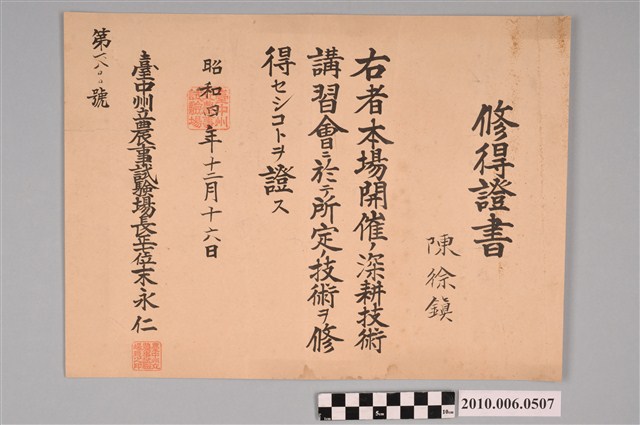 修得證書
陳徐鎮
右者本場開催ノ深耕技術
講習會ニ於テ所定ノ技術ヲ修
得セシコトヲ證ス
昭和四年十二月十六日
臺中州立農事試驗場長從七位末永仁
第一八号號
5cm
10cm
2010.006.0507